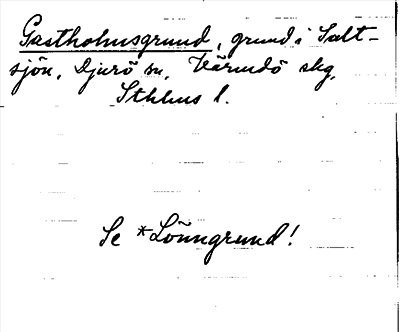 Gastholmsgrund, grund i Salt-
sjön, Djurö sn, Värmdö skg,
Sthlms l.
Se *Lönngrund!